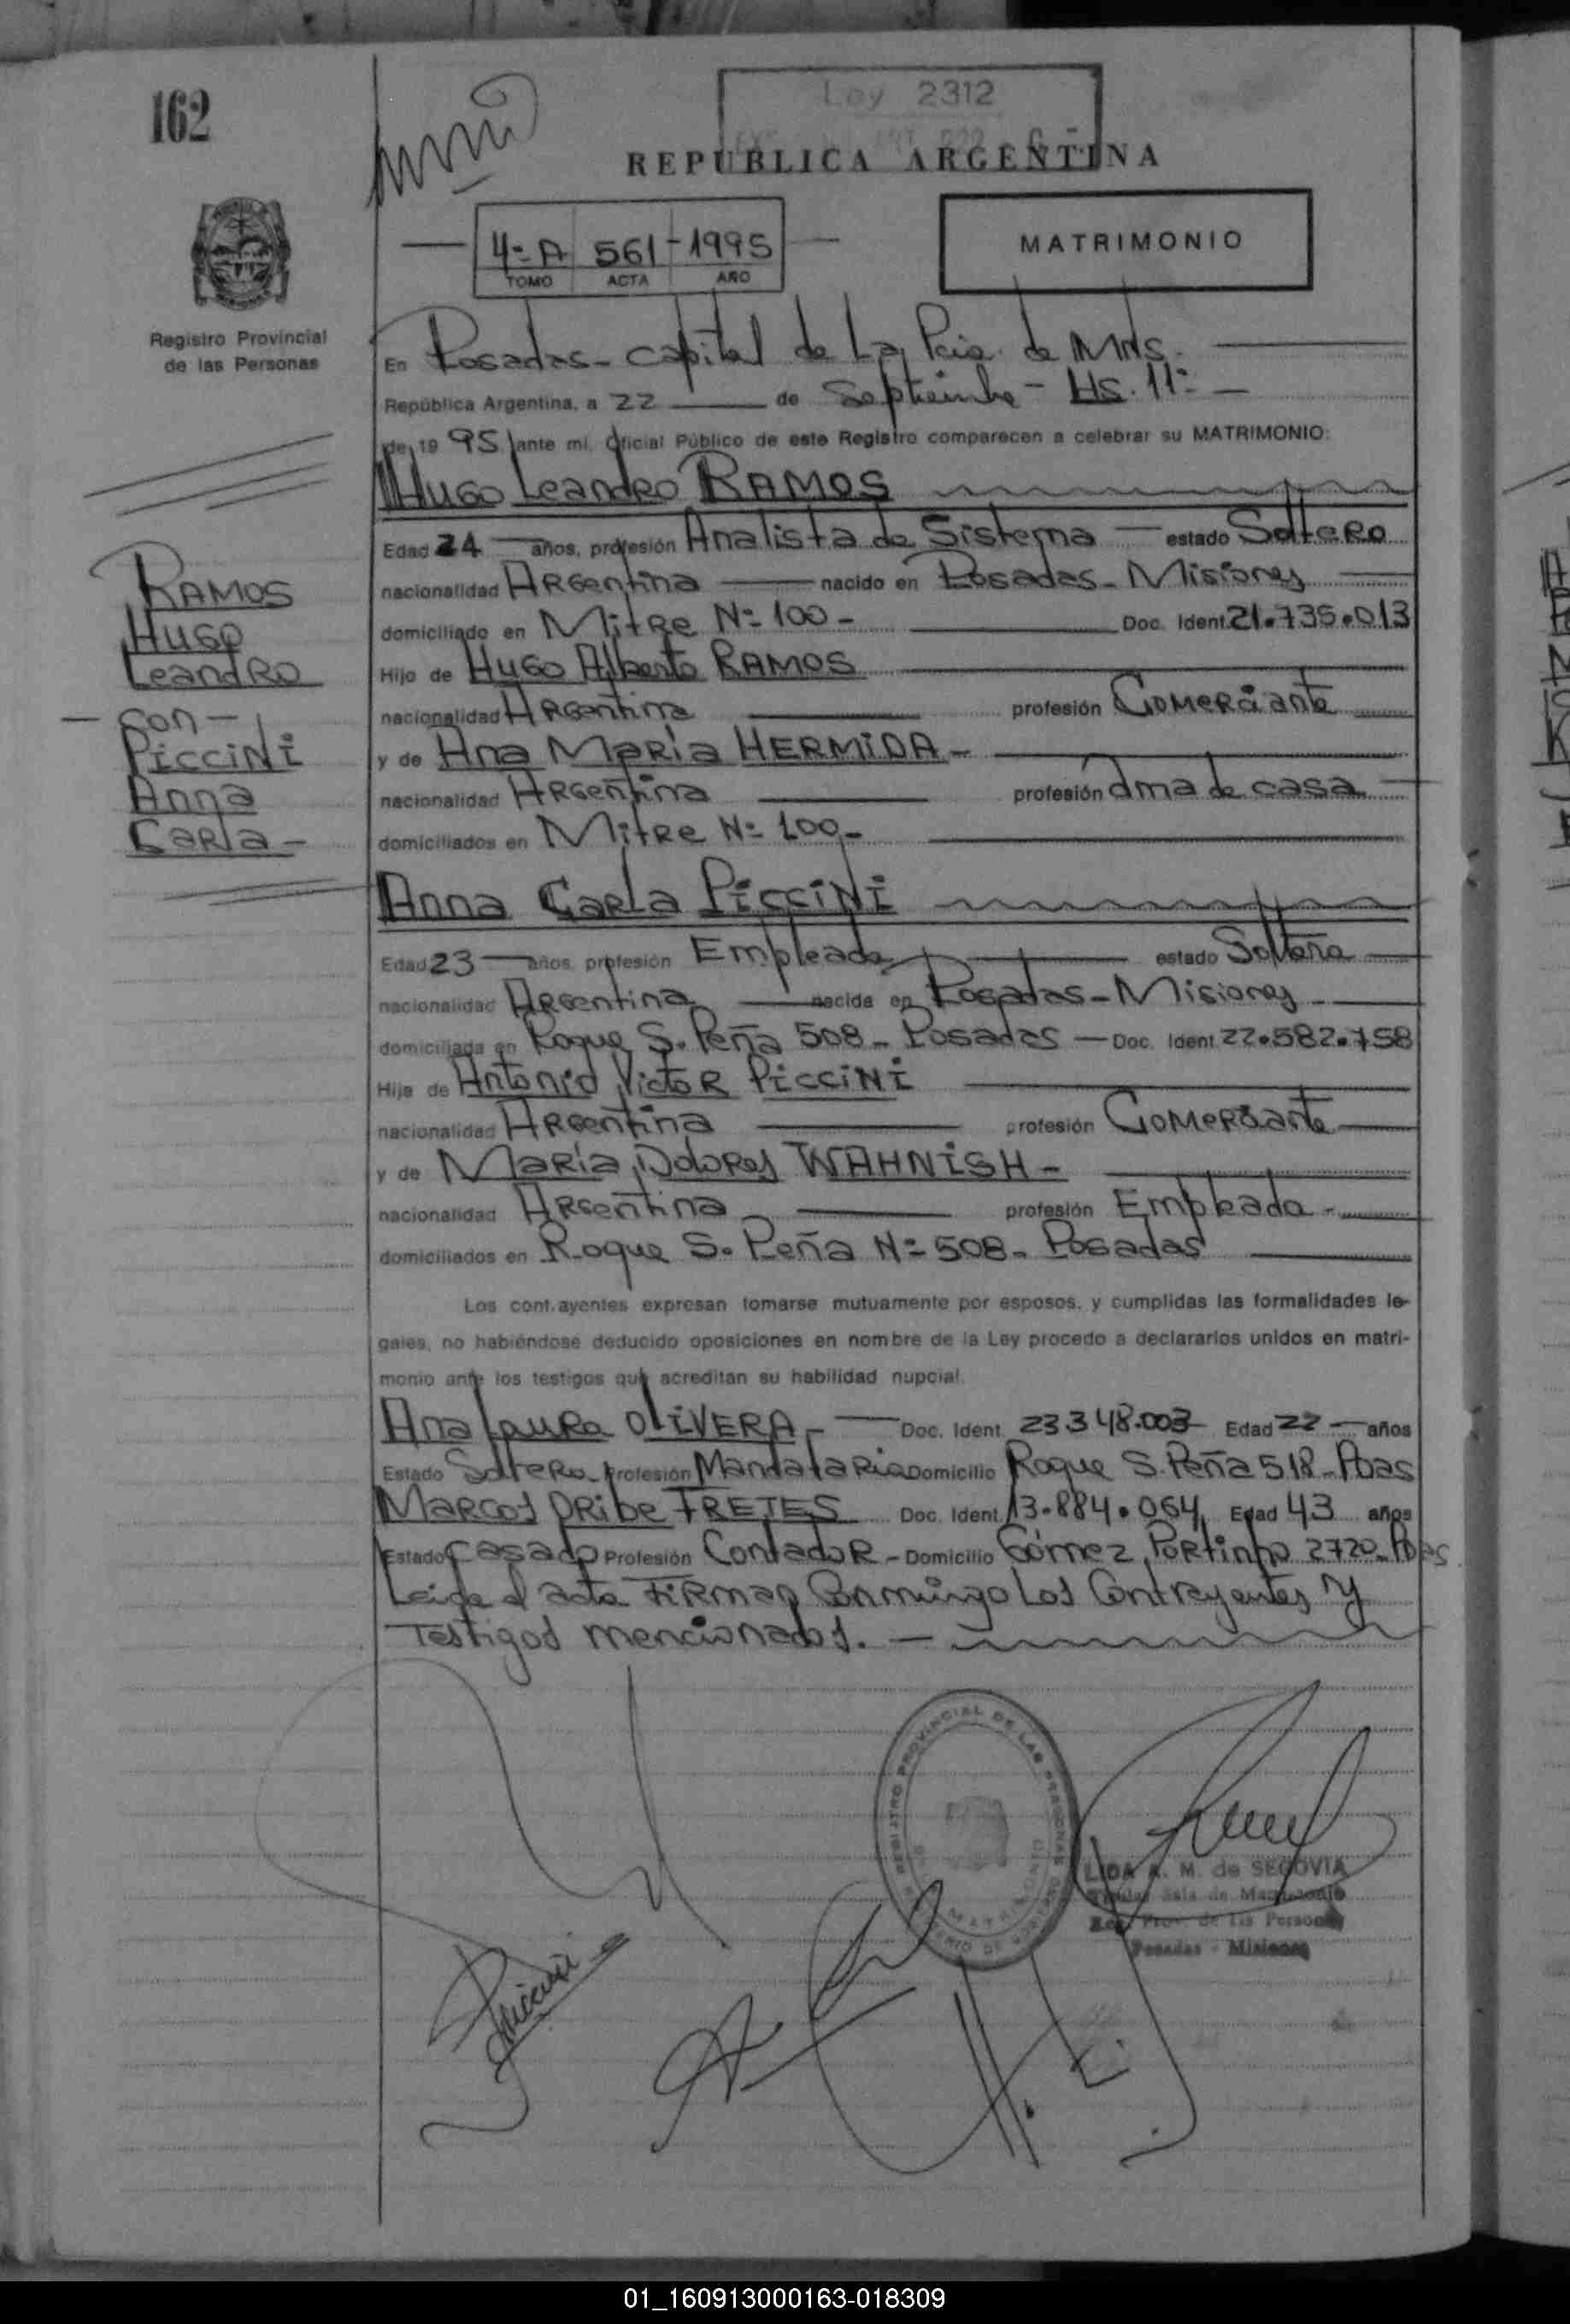 162
Ley 2312
REPUBLICA ARGENTINA
4º A 561 - 1995
TOMO ACTA AÑO
MATRIMONIO
Registro Provincial
de las Personas
En Posadas - Capital de La Pcia. de Mnes.
República Argentina, a 22 de Septiembre - Hs. 11:
de 19 95 ante mí, Oficial Público de este Registro comparecen a celebrar su MATRIMONIO:
Hugo Leandro RAMOS
Edad 24 años, profesión Analista de Sistema estado Soltero
nacionalidad Argentina nacido en Posadas - Misiones
domiciliado en Mitre Nº 100 - Doc. Ident. 21.735.013
Hijo de Hugo Alberto RAMOS
nacionalidad Argentina profesión Comerciante
y de Ana María HERMIDA -
nacionalidad Argentina profesión Ama de casa
domiciliados en Mitre Nº 100 -
RAMOS
Hugo
Leandro
- con -
PICCINI
Anna
Carla -
Anna Carla PICCINI
Edad 23 años, profesión Empleada estado Soltera
nacionalidad Argentina nacida en Posadas - Misiones
domiciliada en Roque S. Peña 508 - Posadas - Doc. Ident. 22.582.758
Hija de Antonio Victor PICCINI
nacionalidad Argentina profesión Comerciante
y de María Dolores WAHNISH -
nacionalidad Argentina profesión Empleada -
domiciliados en Roque S. Peña Nº 508 - Posadas
Los contrayentes expresan tomarse mutuamente por esposos, y cumplidas las formalidades le-
gales, no habiéndose deducido oposiciones en nombre de la Ley procedo a declararlos unidos en matri-
monio ante los testigos que acreditan su habilidad nupcial.
Ana Laura OLIVERA - Doc. Ident. 23.348.003 Edad 22 años
Estado Soltera Profesión Mandataria Domicilio Roque S. Peña 518 - Pdas
Marcos Oribe FRETES Doc. Ident. 13.884.064 Edad 43 años
Estado Casado Profesión Contador - Domicilio Gómez Portinho 2720 - Pdas.
Leída el acta Firman Conmigo Los Contrayentes y
Testigos mencionados. -
REGISTRO PROVINCIAL DE LAS PERSONAS
MATRIMONIO
LIDA A. M. de SEGOVIA
Titular Sala de Matrimonio
Reg. Prov. de las Personas
Posadas - Misiones
Piccini
01_160913000163-018309